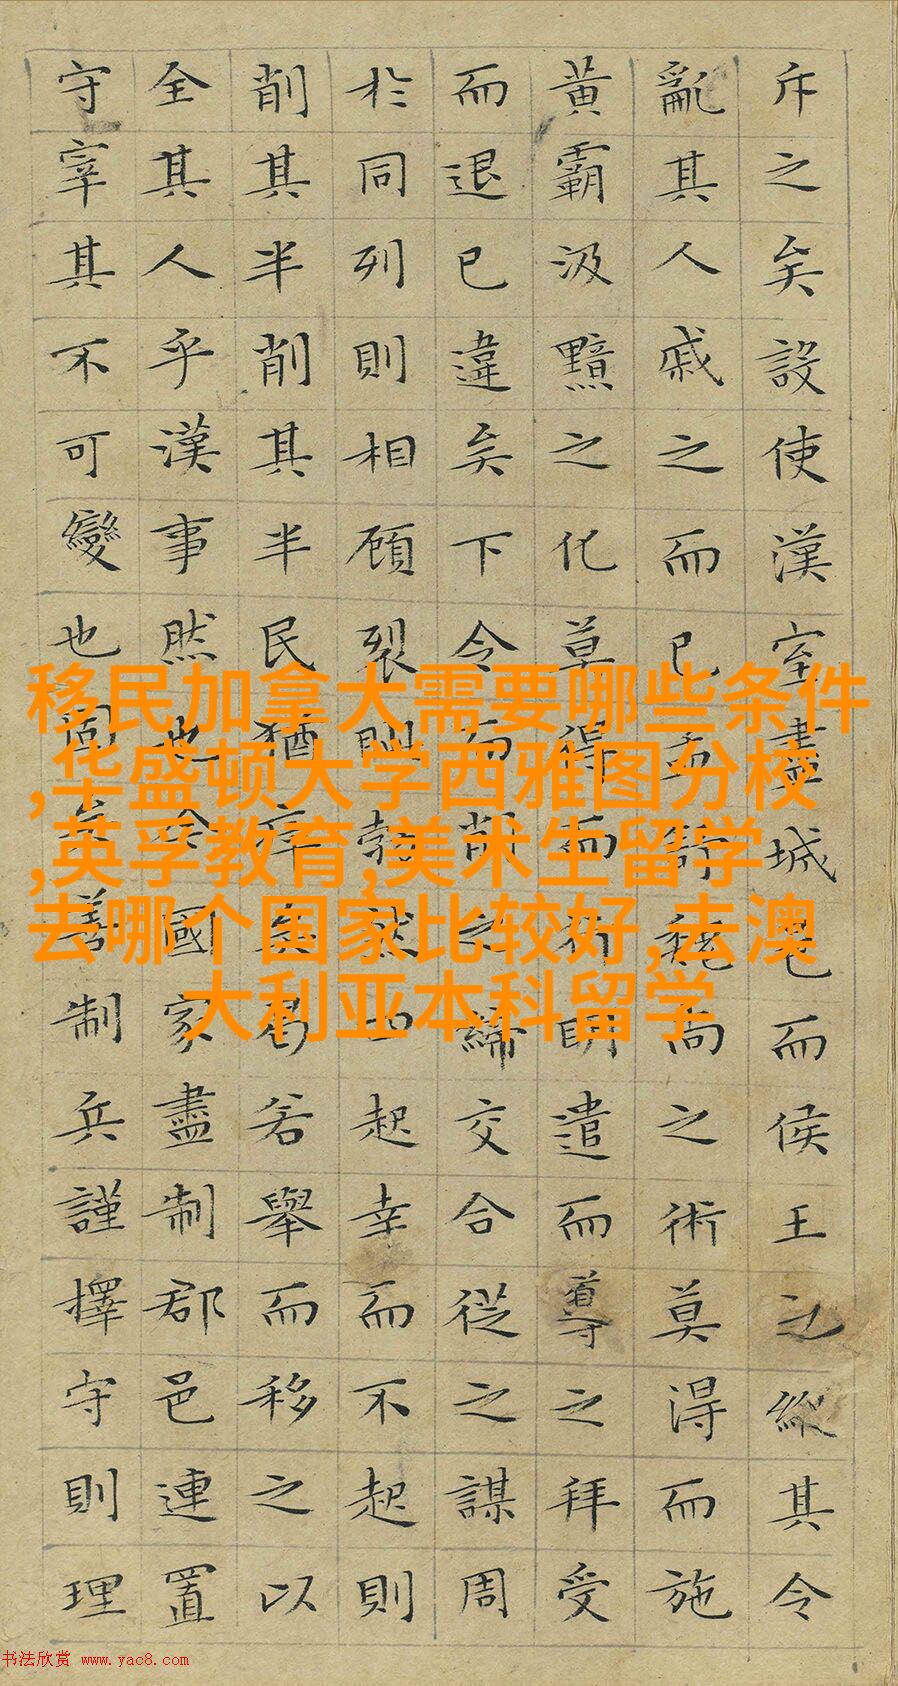 斥之矣設使漢室盡城邑而侯王之縱其令
亂其人戚之而已孟舒魏尚之術莫得而施
黃霸汲黯之化莫得而行明遣而導之拜受
而退已違矣下令而削之締交合從之謀周
於同列則相顧裂眥勃然而起幸而不起則
削其半削其半民猶瘁矣曷若舉而移之以
全其人乎漢事然也今國家盡制郡邑連置
守宰其不可變也固矣善制兵謹擇守則理
移民加拿大需要哪些条件
,华盛顿大学西雅图分校
,英孚教育,美术生留学
去哪个国家比较好,去澳
大利亚本科留学
书法欣赏 www.yac8.com